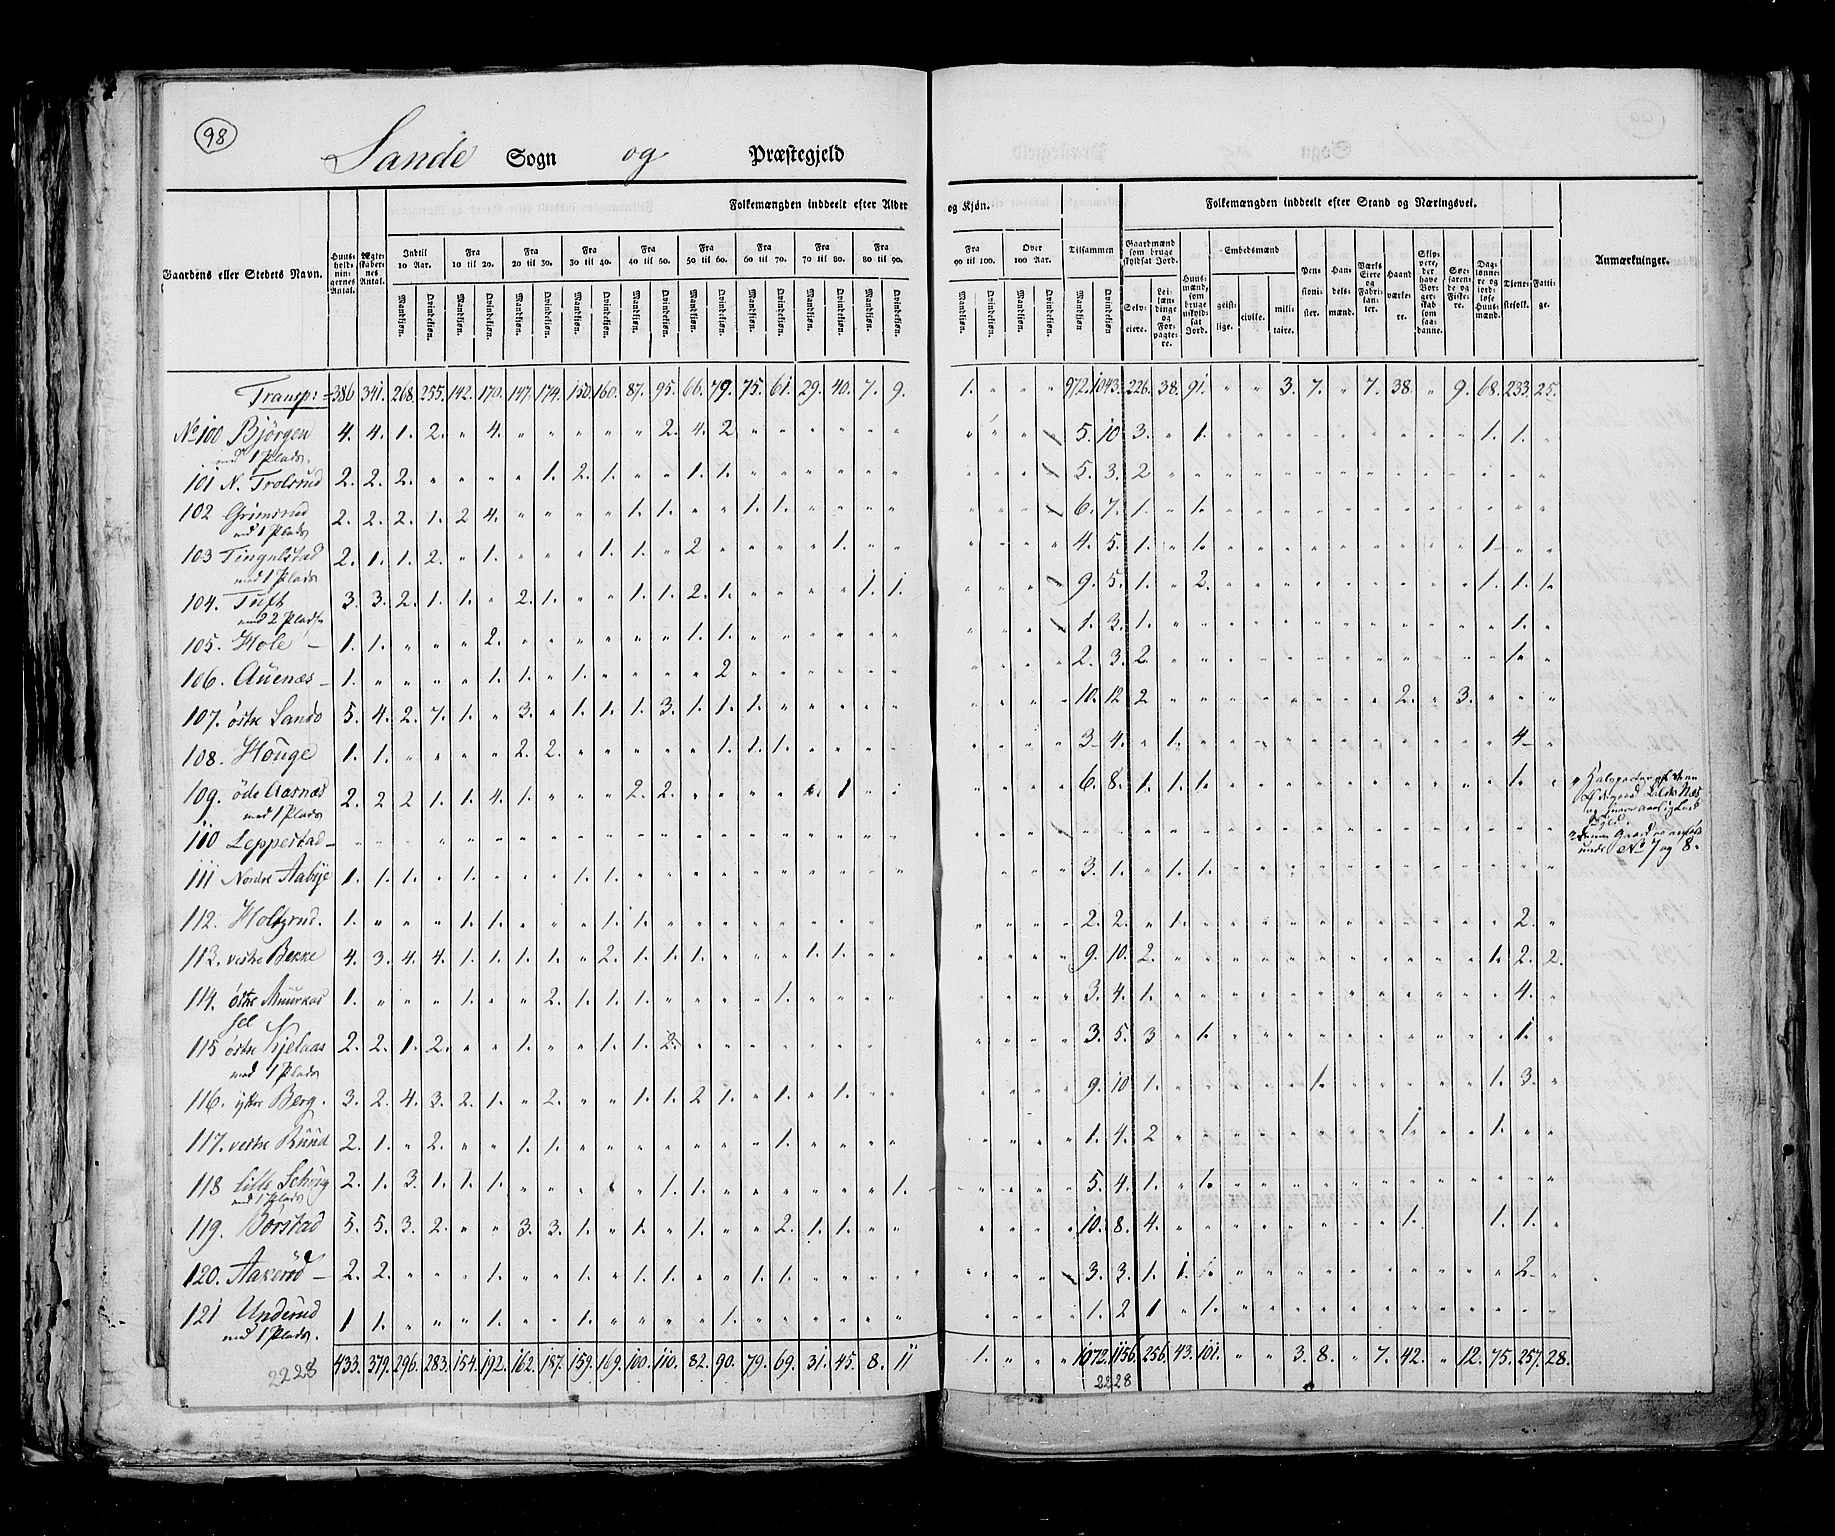 98
Sande Sogn og Præstegjeld
Gaardens eller Stedets Navn.
Huusholdningernes Antal.
Ægteskabernes Antal.
Folkemængden inddeelt efter Alder og Kjøn.
Indtil 10 Aar. Fra 10 til 20. Fra 20 til 30. Fra 30 til 40. Fra 40 til 50. Fra 50 til 60. Fra 60 til 70. Fra 70 til 80. Fra 80 til 90. Fra 90 til 100. Over 100 Aar. Tilsammen
Mandkjøn. Qvindekjøn.
Folkemængden inddeelt efter Stand og Næringsvei.
Gaardmænd som bruge skyldsat Jord.
Selveiere.
Leilændinge og Forpagtere.
Huusmænd, som bruge uskyldsat Jord.
Embedsmænd
geistlige. civile. militaire.
Pensionister.
Handelsmænd.
Værks Eiere og Fabrikanter.
Haandværkere.
Søefarende og Fiskere.
Daglønnere og jordløse Huusmænd.
Tjenestefolk.
Fattige.
Anmærkninger.
Transp: 386. 341. 268. 255. 142. 170. 147. 174. 150. 160. 87. 95. 66. 79. 75. 61. 29. 40. 7. 9. 1. " " " 972. 1043. 226. 38. 91. " " 3. 7. " 7. 38. " 9. 68. 233. 25.
No 100 Bjørgen 4. 4. 1. 2. " 4. " " " " " 2. 4. 2 " " " " " " " " " 5. 10 3. " 1. " " " " " " " " " 1. 1. "
med 1 Plads.
101 N. Trolsrud 2. 2. 2. " " " " 1. 2. 1. " " 1. 1. " " " " " " 5. 3. 2
102 Grimsrud 2. 2. 2. 1. 2 4. " " " " 1. 1. " " 1. 1. " " " 6. 7. 1. " 1.
med 1 Plads
103 Tingulstad 2. 1. 1. 2. " 1. " " " 1. 1. " 2 " " " " 1. " " 4. 5. 1. " 1. 1 " "
med 1 Plads
104. Tuft 3. 3. 2. 1. 1. " 2. 1. " " 1. 1. 2. 1. " " " " 1. 1. 9. 5. 1. " 2. 1. 1. 1.
med 2 Pladse
105. Hole 1. 1. " " " 2. " " " " " " 1. 1. " " " " " " 1. 3. 1. 1. "
106. Auenæs 1. " " " " 1. 1. " 1. " " " " 2 " " " " " " 2. 3. 2. 1. "
107. østre Sando 5. 4. 2. 7. 1. " 3. " 1. 1. 1. 3. 1. 1. 1. " " " " " 10. 12 2 2. " 3. " " "
108. Houge 1. 1. " " " " 2. 2. " " " " " 1. 1. 1. " " " " 3. 4. " 1. 4 "
109. øde Aasnæs 2. 2 2 1. 1. 4. 1. " " " 2. 2. 1 6. 8. 1. 1. 1. 1. "
med 1 Plads
110 Leppestad
under No 7 og 8.
111 Nordre Aabye 1. 1. 1. " 1. " " " 1. 1. 3. 1. " 1. 1.
112. Holtzrud. 1. " " " 1. 1. " " " 1. 1. 2. 2. " 1. 2. "
113. vestre Bekke 4. 3. 4. 4. 1. 1. 1. 1. " 2. 1. 1. 1. " " " 1. 1. " " 9. 10. 2. 1. 2. 2.
114. østre Muurkassel 1. " " " 1. " " 2. 1. 1. 1. " " " " 1. 3. 4. 1. 4. "
115 østre Kjelaas 2. 2. 1. 2. " " 1. " " 1. 1. 2. 3. 5. 3 " 1. 1. "
med 1 Plads
116. ytter Berg. 3. 2. 4. 3. 2. 1. " 2. " " 1. 1. 2. 1. " 1. " 1. " " 9. 10 1. 1. 1. 3. "
117. vestre Ruud 2. 1. " 2. " " 1. 1. " " " " " " " 1. 1. 4. 2 1. 1.
118 Lille 2. 1. 3. 1. 1. 1. " " " " " 1. 1. 1. 5. 4. 1. " 1.
med 1 Plads
119. Borstad 5. 5. 3. 2. " " 3. 3. 1. " 1. " 1. " " 2. 1. 1. " " 10. 8. 4. 1. 1. 1. "
120. Aakerød 2. 2. " " " 1. " " 1. " 1. 1. " " 1. 1. 3. 3. 1. 1. 2. "
121 Underud 1 1. " " " 1. " " 1. " " " " 1. 1. 2 1 " 1.
med 1 Plads.
433. 379. 296. 283. 154. 192. 162. 187. 159. 169. 100. 110. 82. 90. 79. 69. 31. 45. 8. 11 1. " " " 1072. 1156. 256. 43. 101. " " 3. 8. " 7. 42. " 12. 75. 257. 28.
2228
2228